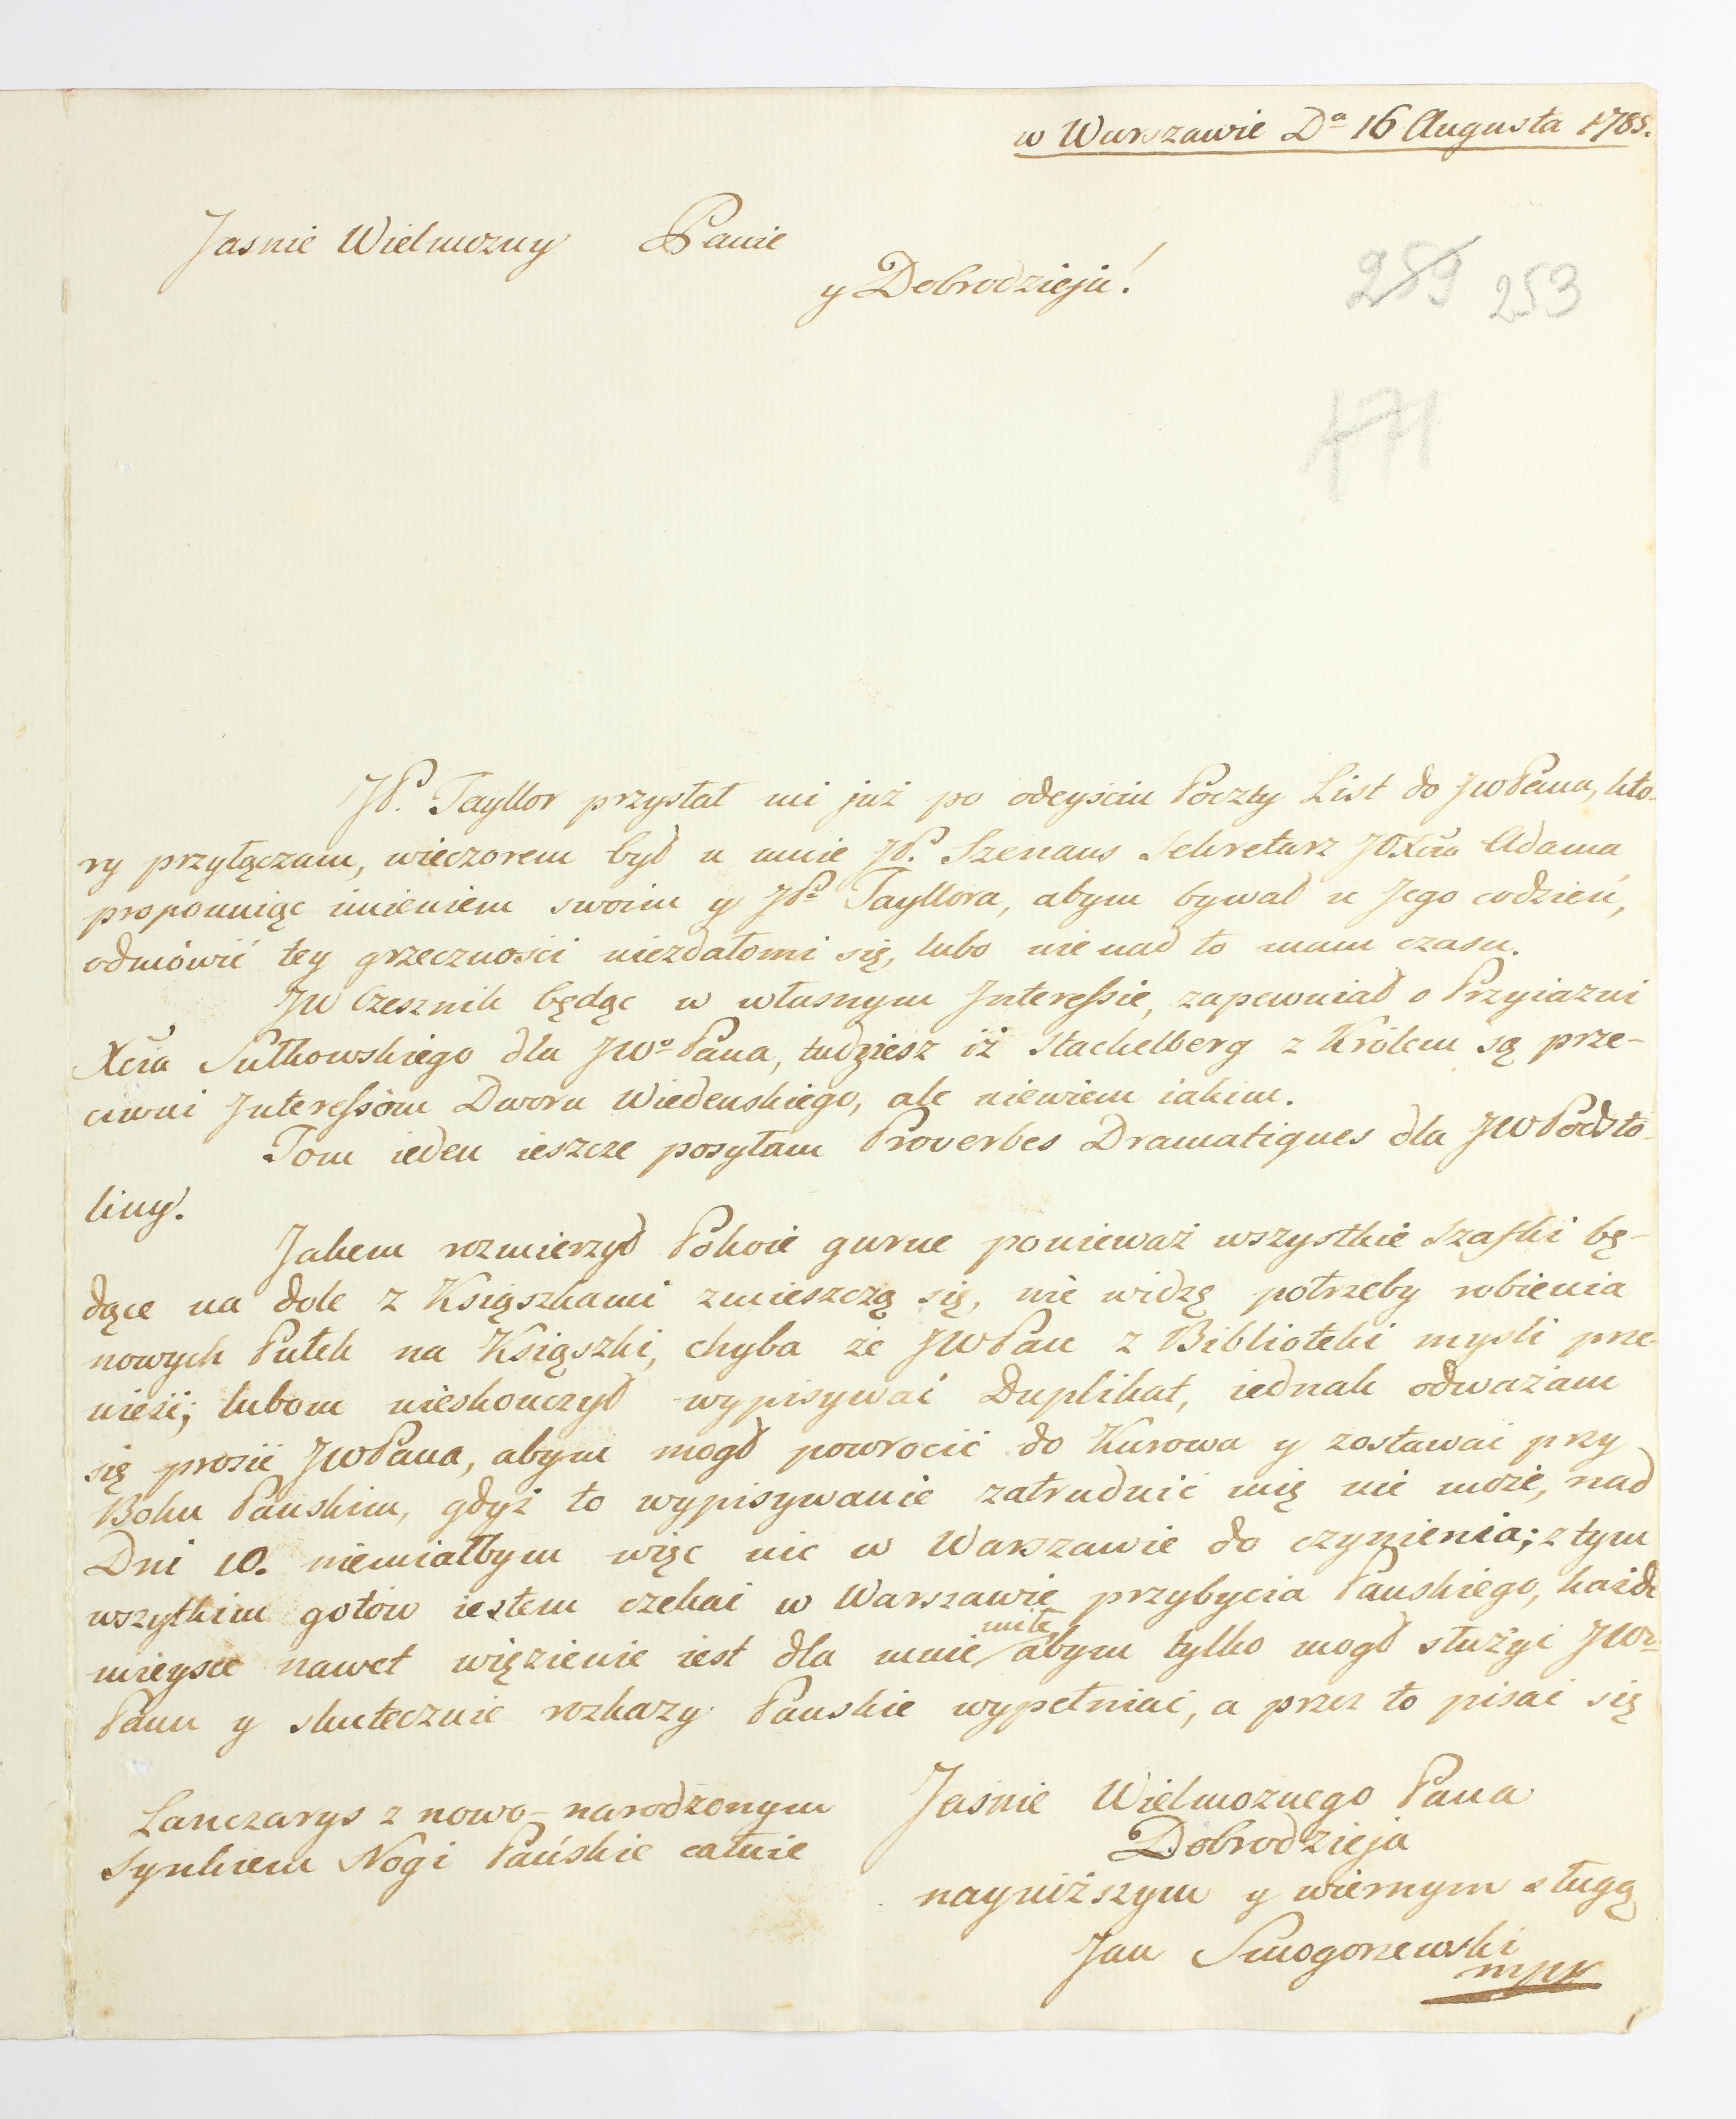 w Warszawie Da 16 Augusta 1785.
Jasnie Wielmozny Panie
y Dobrodzieju!
259 253
171
JP. Tayllor przysłał mi już po odeyściu Poczty List do JWPana, kto-
ry przyłączam, wieczorem był u mnie JP. Szenaus Sekretarz JOXcia Adama
proponuiąc imieniem swoim y JPa Tayllora, abym bywał u Jego codzień,
odmówić tey grzeczności niezdałomi się, lubo nie nad to mam czasu.
JW Czesznik będąc w własnym Interessie, zapewniał o Przyiazni
Xcia Sułkowskiego dla JWo Pana, tudziesz iż Stackelberg z Królem są prze-
ciwni Interessom Dworu Wiedenskiego, ale niewiem iakim.
Tom ieden ieszcze posyłam Proverbes Dramatiques dla JWPodsto-
liny.
Jakem rozmierzył Pokoie gurne ponieważ wszystkie Szafki bę-
dące na dole z Książkami zmieszczą się, nie widzę potrzeby robienia
nowych Pułek na Książki, chyba że JWPan z Biblioteki mysli prze-
nieść; lubom nieskonczył wypisywać Duplikat, iednak odważam
się prosić JWPana, abym mogł powrocić do Kurowa y zostawać przy
Boku Panskim, gdyż to wypisywanie zatrudnić mię nie może, nad
Dni 10. niemiałbym więc nic w Warszawie do czynienia; z tym
wszytkim gotow iestem czekać w Warszawie przybycia Panskiego, każde
mieysce nawet więzienie iest dla mnie miłe abym tylko mogł służyć JWu
Panu y skutecznie rozkazy Panskie wypełniać, a przez to pisać się
Jaśnie Wielmoznego Pana
Dobrodzieja
nayniższym y wiernym sługą
Jan Smogorzewski
mpr
Lanczarys z nowo-narodzonym
Synkiem Nogi Pańskie całuie